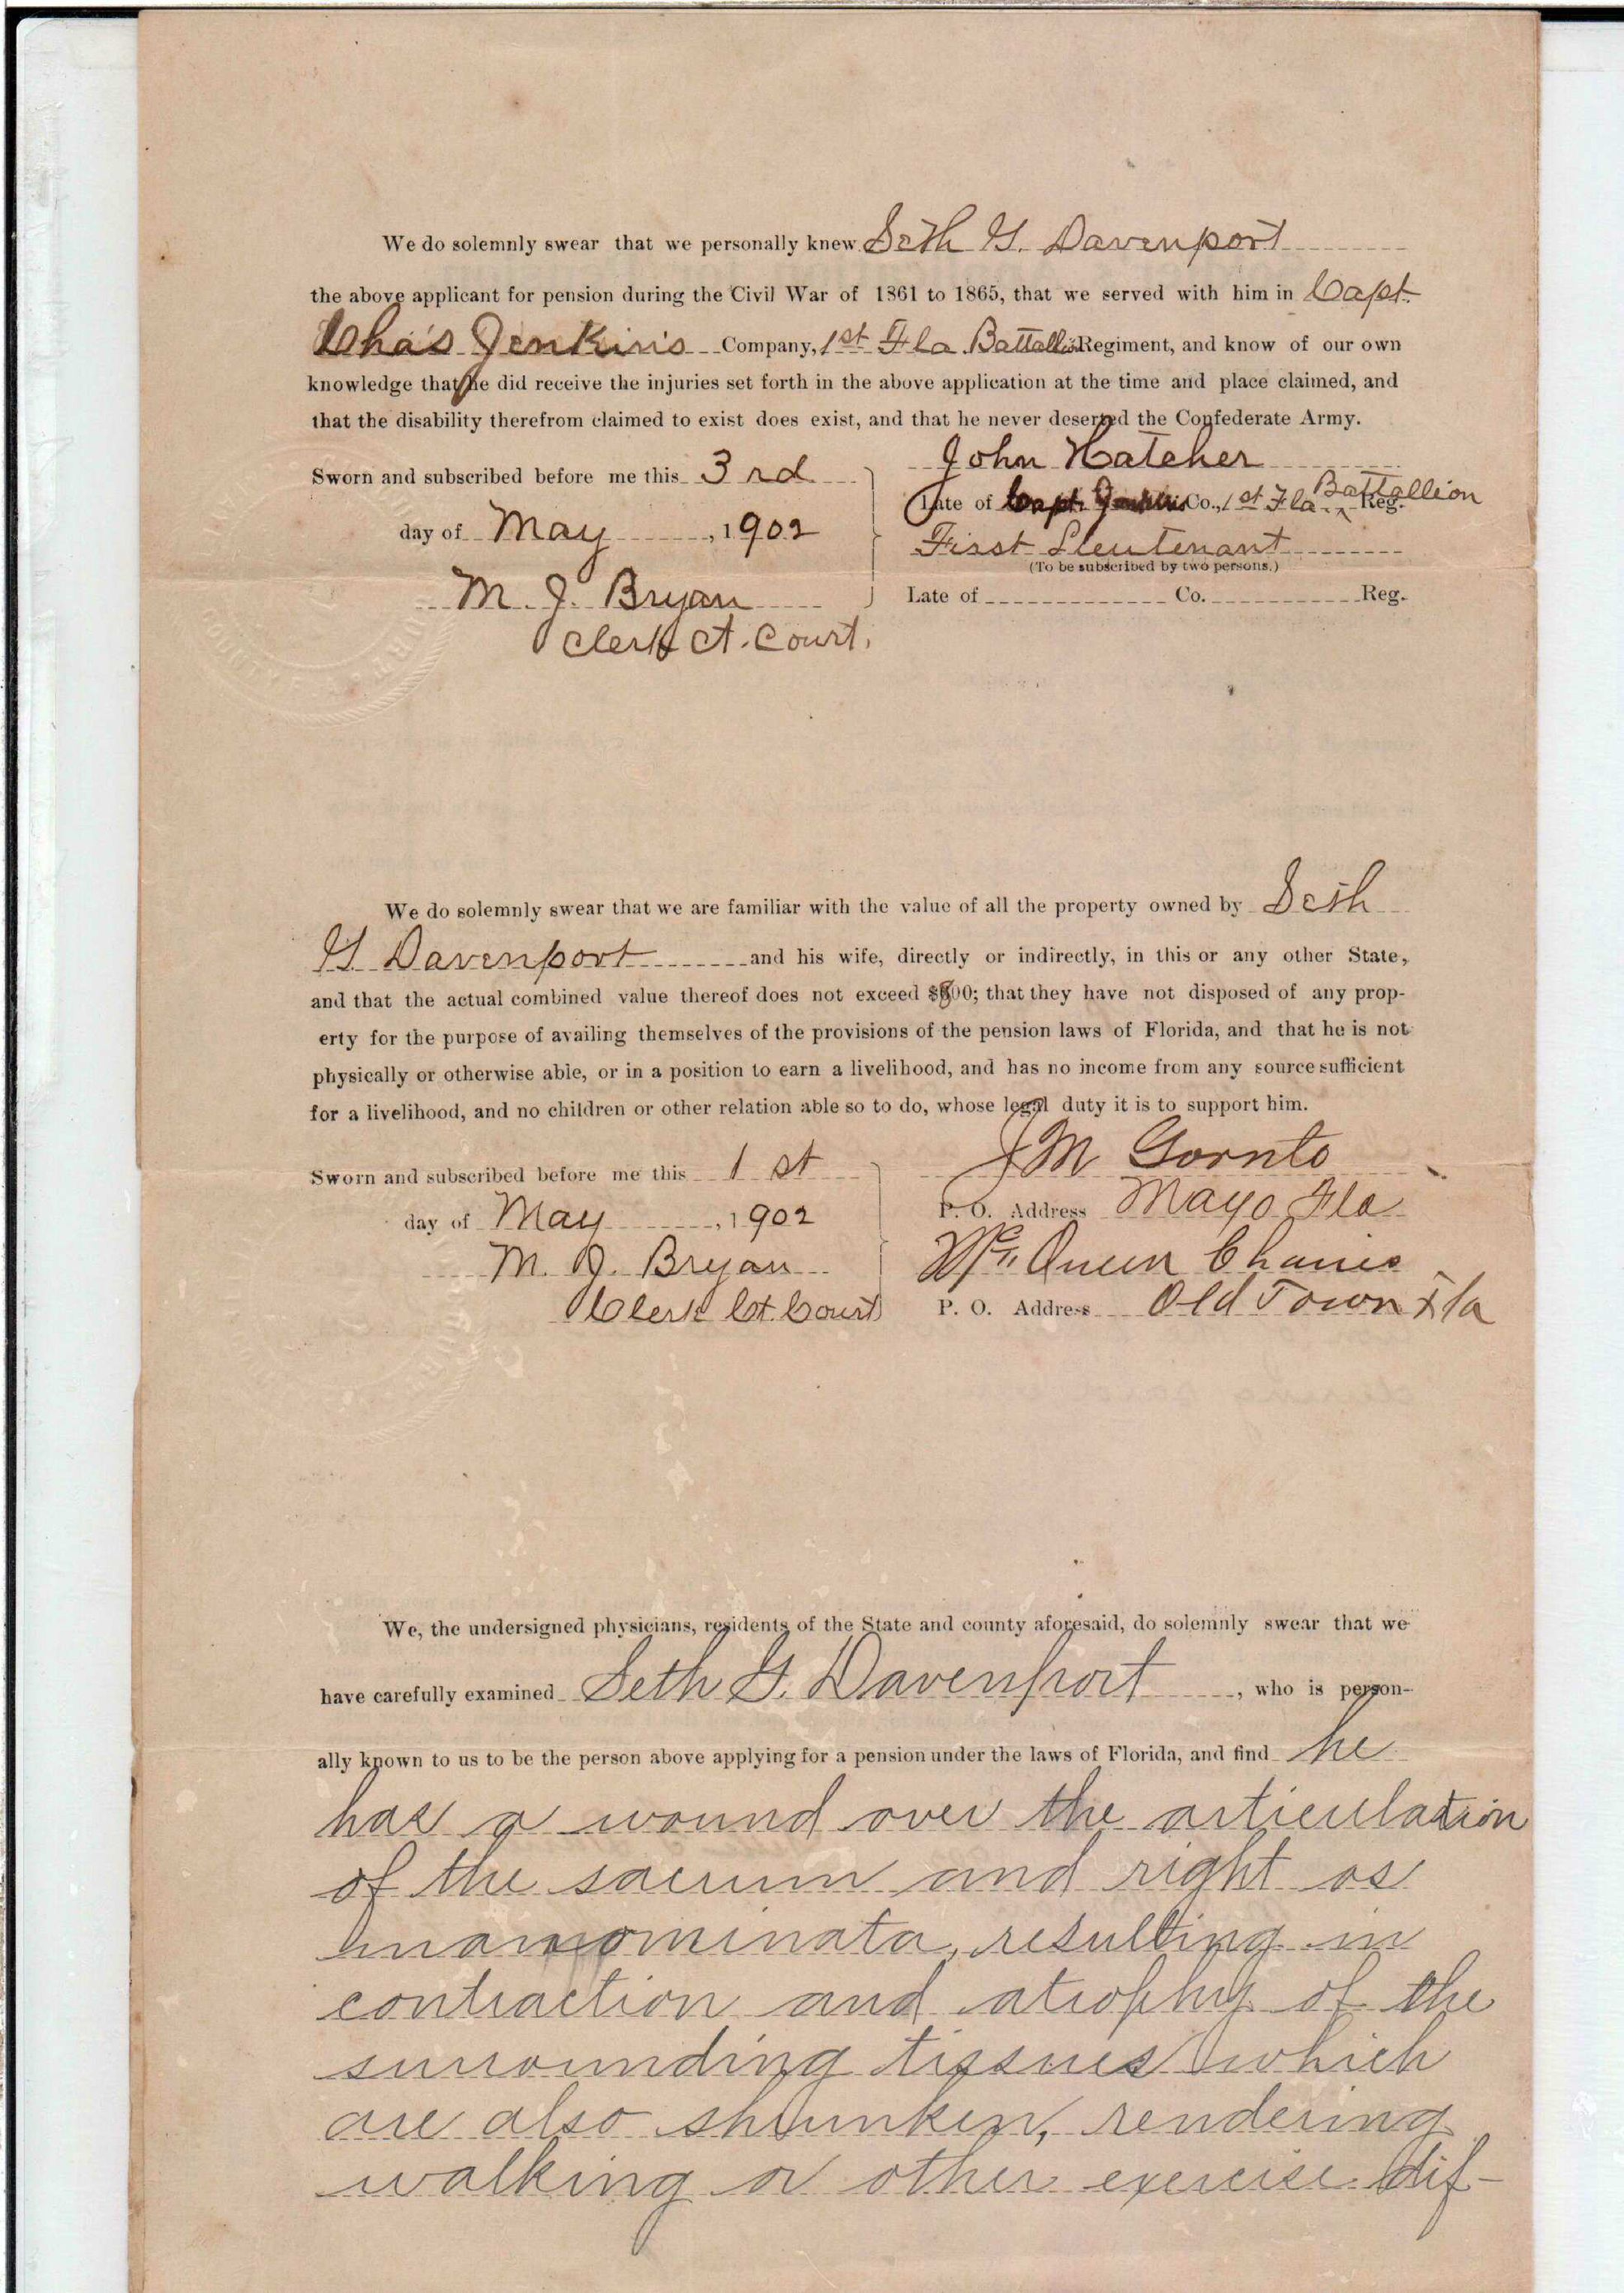 We do solemnly swear that we personally knew Seth G. Davenport
the above applicant for pension during the Civil War of 1861 to 1865, that we served with him in Capt.
Cha's Jenkins Company, 1st Fla Battallion Regiment, and know of our own
knowledge that he did receive the injuries set forth in the above application at the time and place claimed, and
that the disability therefrom claimed to exist does exist, and that he never deserted the Confederate Army.
Sworn and subscribed before me this 3rd
day of May, 1902
M. J. Bryan
Clerk Ct. Court.
John Hatcher
Late of Capt. Co., 1st Fla Battallion Reg.
First Lieutenant
(To be subscribed by two persons.)
Late of Co. Reg.
We do solemnly swear that we are familiar with the value of all the property owned by Seth
G. Davenport and his wife, directly or indirectly, in this or any other State,
and that the actual combined value thereof does not exceed $800; that they have not disposed of any prop-
erty for the purpose of availing themselves of the provisions of the pension laws of Florida, and that he is not
physically or otherwise able, or in a position to earn a livelihood, and has no income from any source sufficient
for a livelihood, and no children or other relation able so to do, whose legal duty it is to support him.
Sworn and subscribed before me this 1st
day of May, 1902
M. J. Bryan
Clerk Ct. Court
J M Gornto
P. O. Address Mayo Fla
McQueen Chaires
P. O. Address Old Town Fla
We, the undersigned physicians, residents of the State and county aforesaid, do solemnly swear that we
have carefully examined Seth G. Davenport, who is person-
ally known to us to be the person above applying for a pension under the laws of Florida, and find he
has a wound over the articulation
of the sacrum and right os
resulting in
contraction and atrophy of the
surrounding tissues which
are also shrunken, rendering
walking or other exercise dif-